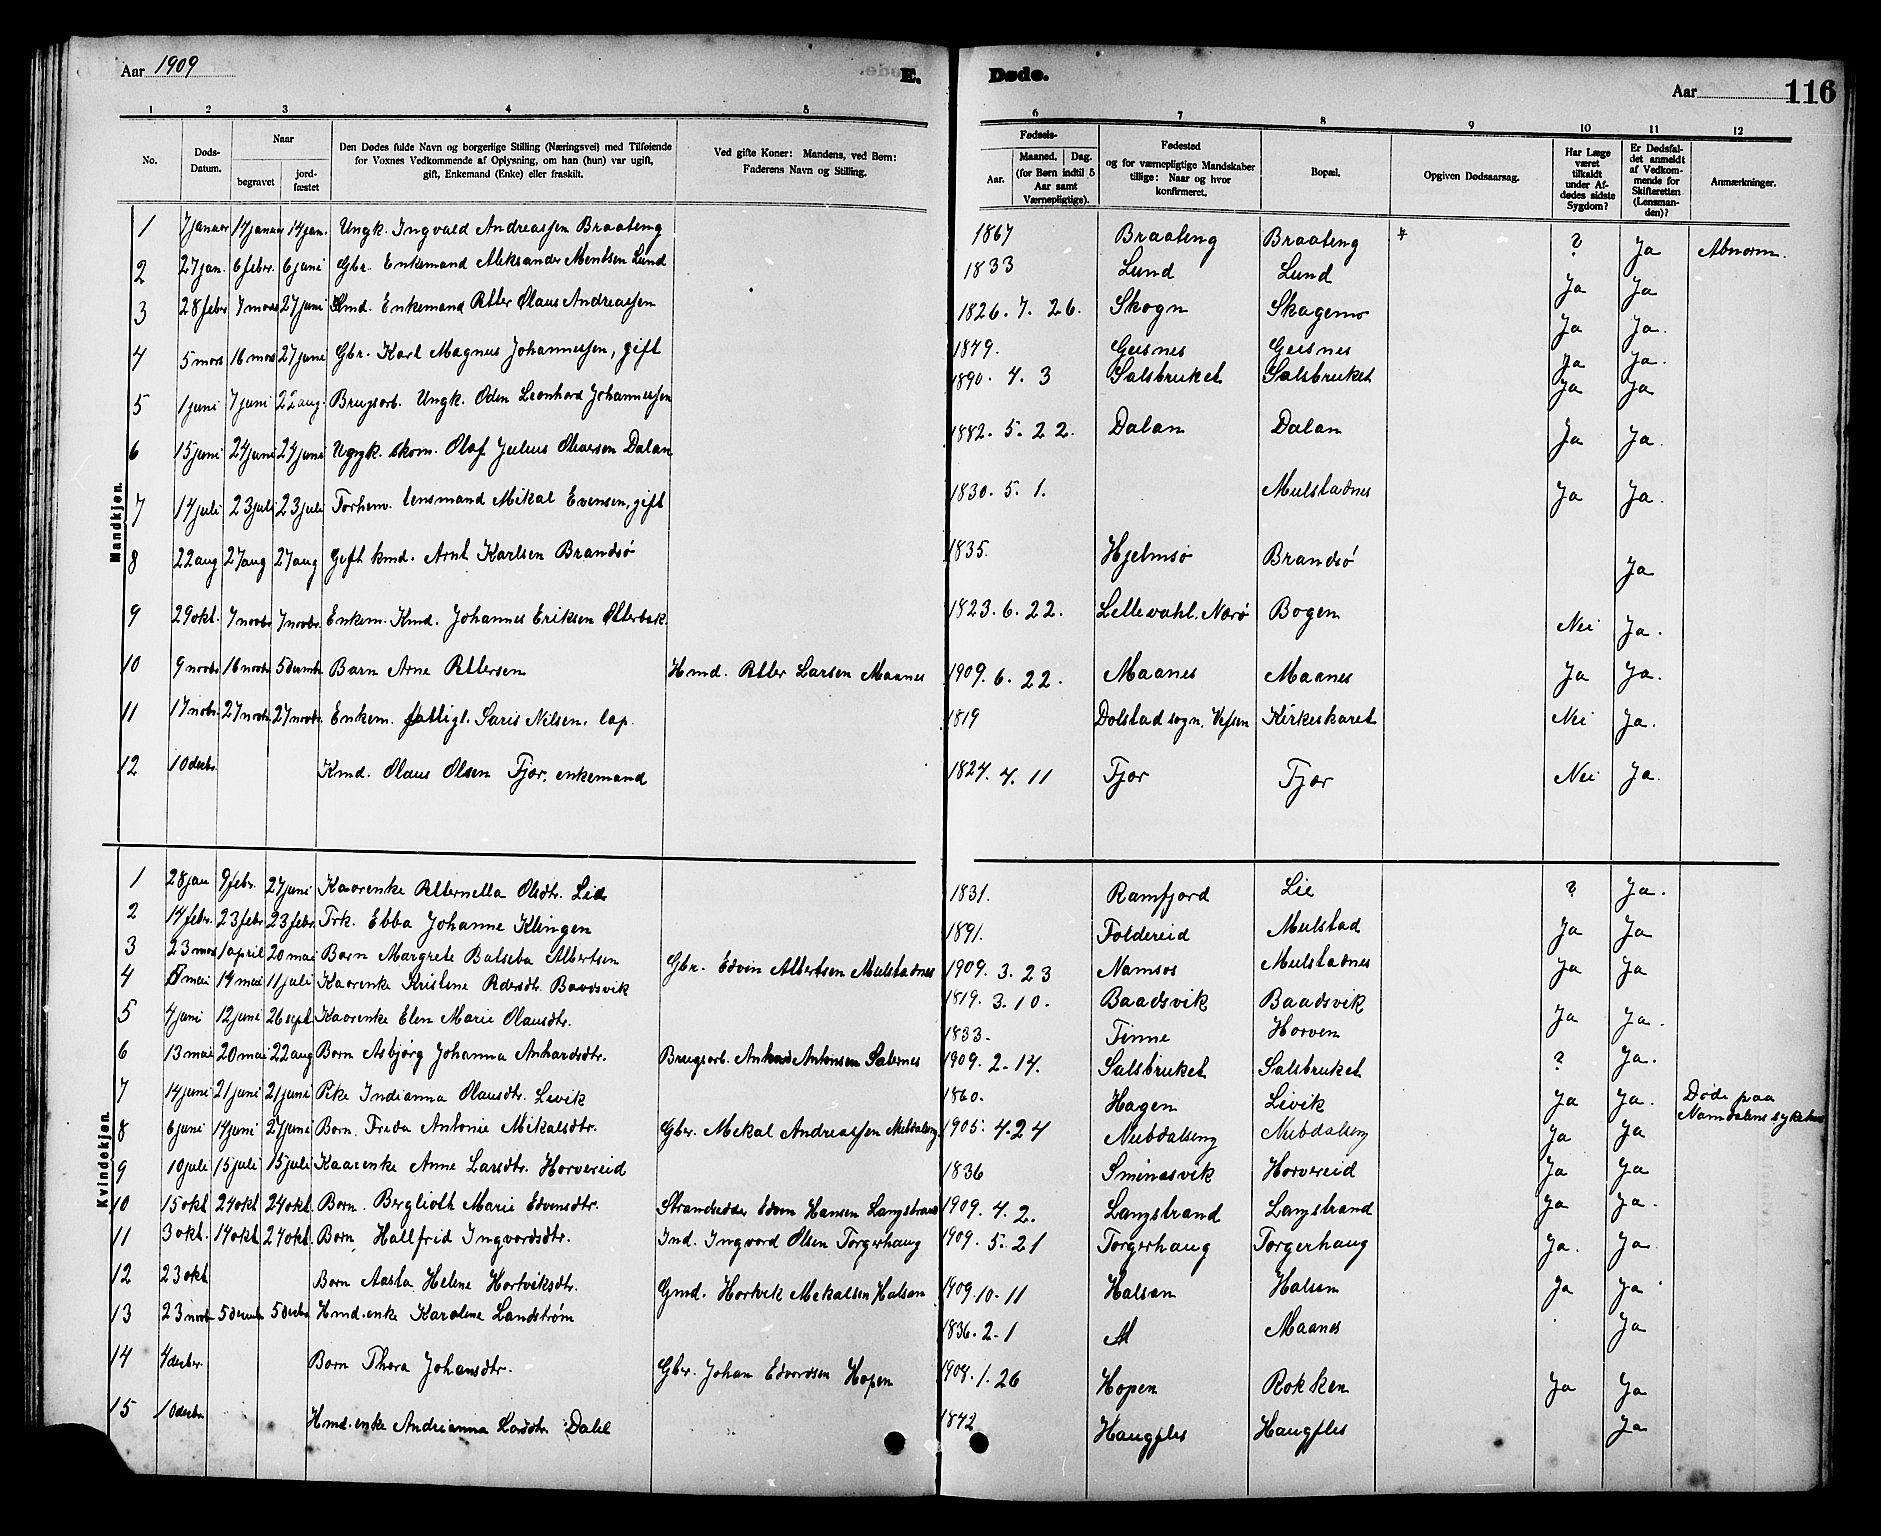 Aar 1909
E.
Døde.
Aar
116
1 2 3 4 5 6 7 8 9 10 11 12
No.
Døds-Datum.
Naar
begravet
jord-fæstet
Den Dødes fulde Navn og borgerlige Stilling (Næringsvei) med Tilføiende
for Voxnes Vedkommende af Oplysning, om han (hun) var ugift,
gift, Enkemand (Enke) eller fraskilt.
Ved gifte Koner: Mandens, ved Børn:
Faderens Navn og Stilling.
Fødsels-
Aar.
Maaned. Dag.
(for Børn indtil 5
Aar samt
Værnepligtige).
Fødested
og for værnepligtige Mandskaber
tillige: Naar og hvor
konfirmeret.
Bopæl.
Opgiven Dødsaarsag.
Har Læge
været
tilkaldt
under Af-
dødes sidste
Sygdom?
Er Dødsfal-
det anmeldt
af Vedkom-
mende for
Skifteretten
(Lensman-
den)?
Anmærkninger.
Mandkjøn.
1 7 januar 14 januar 14 jan. Ungk. Ingvald Andreassen Braateng 1867 Braateng Braateng ? Ja Abnorm.
2 27 jan. 6 febr. 6 juni Gbr. Enkemand Aleksander Mentsen Lund 1833 Lund Lund Ja Ja
3 28 febr 7 mars 27 juni Kmd. Enkemand Petter Olaus Andreassen 1826. 7. 26. Skogn Skagemo Ja Ja.
4 5 mars 16 mars 27 juni Gbr. Karl Magnus Johannessen, gift 1849. Geisnes Geisnes Ja Ja.
5 1 juni 7 juni 22 aug. Brugsarb. Ungk. Oden Leonhard Johannessen 1890. 4. 3 Salsbruket Salsbruket Ja Ja
6 15 juni 24 juni 24 juni Ungk. skom. Olaf Julius Oluersen Dalan 1882. 5. 22. Dalan Dalan Ja Ja.
7 14 juli 23 juli 23 juli Forhenv. lensmand Mikal Evensen, gift 1830. 5. 1. Mulstadnes Ja Ja.
8 22 aug 27 aug 27 aug Gift kmd. Arnt Karlsen Brandsø 1835. Hjelmsø Brandsø Ja
9 29 okt. 7 novbr 7 novbr. Enkem. Kmd. Johannes Eriksen Otterbak 1823. 6. 22. Lillevahl, Nærø Bogen Nei Ja.
10 9 novbr 16 novbr 5 decmbr Barn Arne Pettersen Hmd. Petter Larsen Maanes 1909. 6. 22. Maanes Maanes Ja Ja.
11 17 nobr. 27 novbr 27 novbr. Enkem. fattigl. Saris Nilsen, lap. 1819 Dolstad sogn, Vefsen Kirkeskaret Nei Ja.
12 10 decbr. Kmd. Olaus Olsen Fjær, enkemand 1824. 4. 11 Fjær Fjær Nei Ja.
Kvindekjøn.
1 28 jan 9 febr. 27 juni Kaarenke Petternella Olsdtr. Lie 1831. Ramfjord Lie ? Ja.
2 14 febr. 23 febr 23 febr. Frk. Ebba Johanne Klingen 1891. Foldereid Mulstad Ja Ja
3 23 mars 1 april 20 mai Barn Margrete Batseba Albertsen Gbr. Edvin Albertsen Mulstadnes 1909. 3. 23 Namsos Mulstadnes Ja Ja
4 mai 14 mai 11 juli Kaarenke Kristine Pedersdt. Baadsvik 1819. 3. 10. Baadsvik Baadsvik
5 4 juni 12 juni 26 sept Kaarenke Elen Marie Olausdtr. 1833. Finne Horven Ja Ja.
6 13 mai 20 mai 22 aug Barn Asbjørg Johanna Anhardsdtr. Brugsarb. Anhard Antonsen Salsnes 1909. 2. 14. Salsbruket Salsbruket ? Ja.
7 14 juni 21 juni 21 juni Pike Indianna Olausdtr. Livik 1860. Hagen Livik Ja Ja. Døde paa
Namdalens sykehus
8 6 juni 14 juni 27 juni Barn. Frida Antonie Mikalsdtr. Gbr. Mikal Andreassen Nubdalseng 1905. 4. 24 Nubdalseng Nubdalseng Ja Ja
9 10 juli 15 juli 15 juli Kaarenke Anne Larsdtr. Horvereid 1836 Sminesvik Horvereid Ja Ja
10 15 okt 24 okt 24 okt. Barn. Berglioth Marie Edvinsdtr. Strandsidder Edvin Hansen Langstrand 1909. 4. 2. Langstrand Langstrand Ja Ja.
11 3 okt. 14 okt 24 okt. Barn Hallfrid Ingvardsdtr. Ind. Ingvard Olsen Torgerhaug 1909. 5. 21 Torgerhaug Torgerhaug Ja. Ja
12 23 okt Barn Aasta Helene Hartviksdtr. Gmd. Hartvik Mikalsen Halsan 1909. 10. 11 Halsan Halsan Ja Ja
13 23 novbr 5 decmb 5 decbr Hmd. enke Karoline Landstrøm 1836. 2. 1 M Maanes Ja
14 4 decbr. Barn Thora Johansdtr. Gbr. Johan Edvardsen Hopen 1908. 1. 26 Hopen Rokken Ja Ja
15 10 decbr Hmd. enke Andrianna Larsdtr. Dahl 1842 Haugfles Haugfles Ja